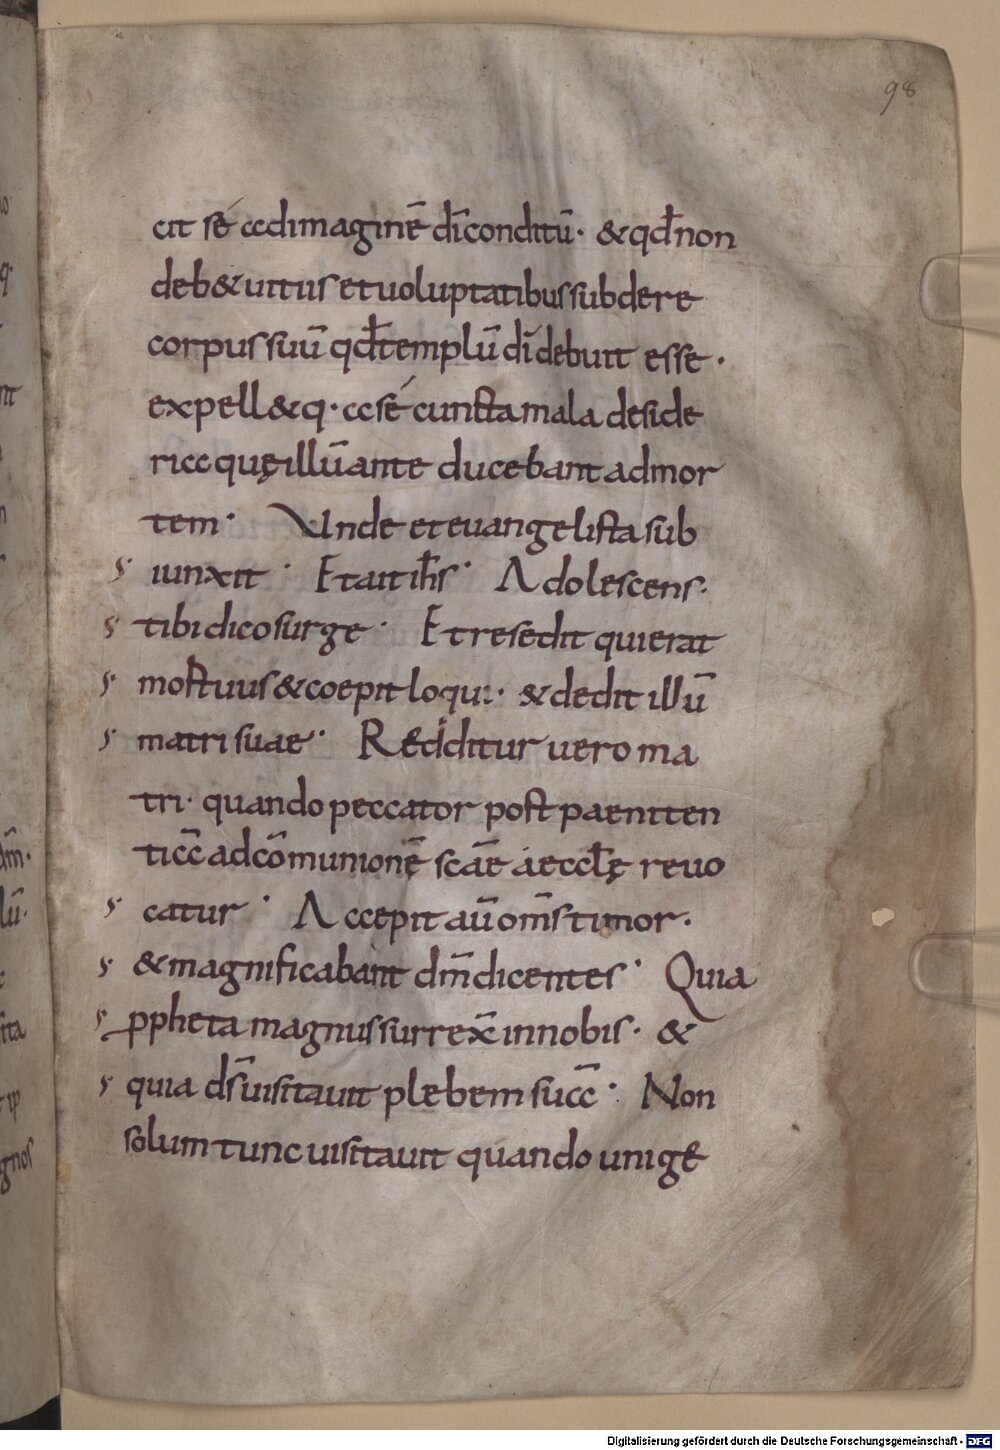 98
cit sé adimaginē dīconditū· &qđnon
deb& uitiis etuoluptatibus subdere
corpus suū qđtemplū dī debuit esse·
expell& q· a sé cuncta mala deside
ria quęillū ante ducebant admor
tem· Unde et euangelista sub
iunxit· Et ait ih̄s· Adolescens·
tibi dico surge· Et resedit qui erat
mortuus & coepit loqui· & dedit illū
matri suae· Redditur uero ma
tri· quando peccator post paeniten
tiā ad cōmunionē scāe aecclę reuo
catur· Accepit aū om̄s timor·
& magnificabant dm̄ dicentes· Quia
ppheta magnus surrex̄ in nobis· &
quia ds̄ uisitauit plebem suā· Non
solum tunc uisitauit quando unige
Digitalisierung gefördert durch die Deutsche Forschungsgemeinschaft - DFG